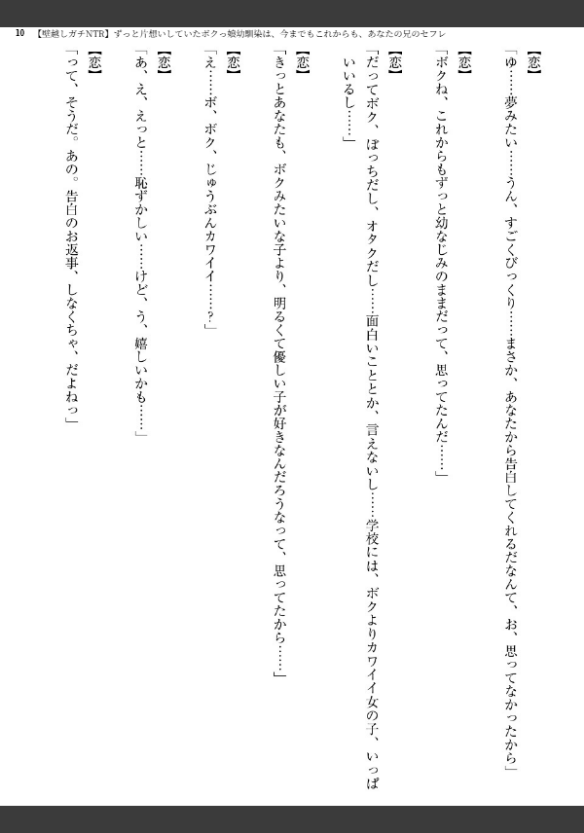 10 【壁越しガチNTR】ずっと片想いしていたボクっ娘幼馴染は、今までもこれからも、あなたの兄のセフレ
【恋】
「ゆ……夢みたい……うん、すごくびっくり……まさか、あなたから告白してくれるだなんて、お、思ってなかったから」
【恋】
「ボクね、これからもずっと幼なじみのままだって、思ってたんだ……」
【恋】
「だってボク、ぼっちだし、オタクだし……面白いこととか、言えないし……学校には、ボクよりカワイイ女の子、いっぱ
いいるし……」
【恋】
「きっとあなたも、ボクみたいな子より、明るくて優しい子が好きなんだろうなって、思ってたから……」
【恋】
「え……ボ、ボク、じゅうぶんカワイイ……？」
【恋】
「あ、え、えっと……恥ずかしい……けど、う、嬉しいかも……」
【恋】
「って、そうだ。あの。告白のお返事、しなくちゃ、だよねっ」